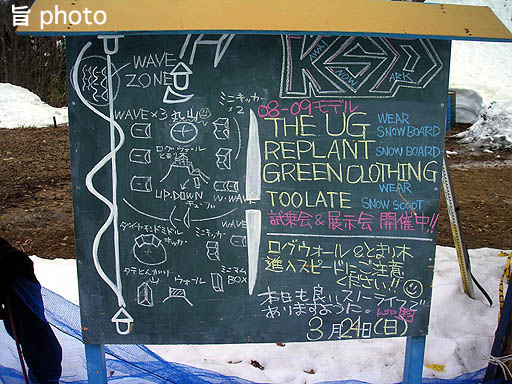 旨 photo
WAVE
ZONE
KSP
KAWA
INOWA
ARK
WAVE×3
丸山
ミニキッカー
×2
ログウォール
とまり木
UP.DOWN
W・WAVE
チューブ
WAVE
ダイヤモンドミドル
キッカー
ミニキッカー
タテとんがり
ウォール
ミニマム
BOX
08-09モデル
THE UG WEAR SNOWBOARD
REPLANT SNOWBOARD
GREEN CLOTHING WEAR
TOOLATE SNOW SCOOT
試乗会&展示会 開催中!!
ログウォール&とまり木
進入スピードにご注意
ください!!
本日も良いスノーライフで
ありますように。
3月24日(日)